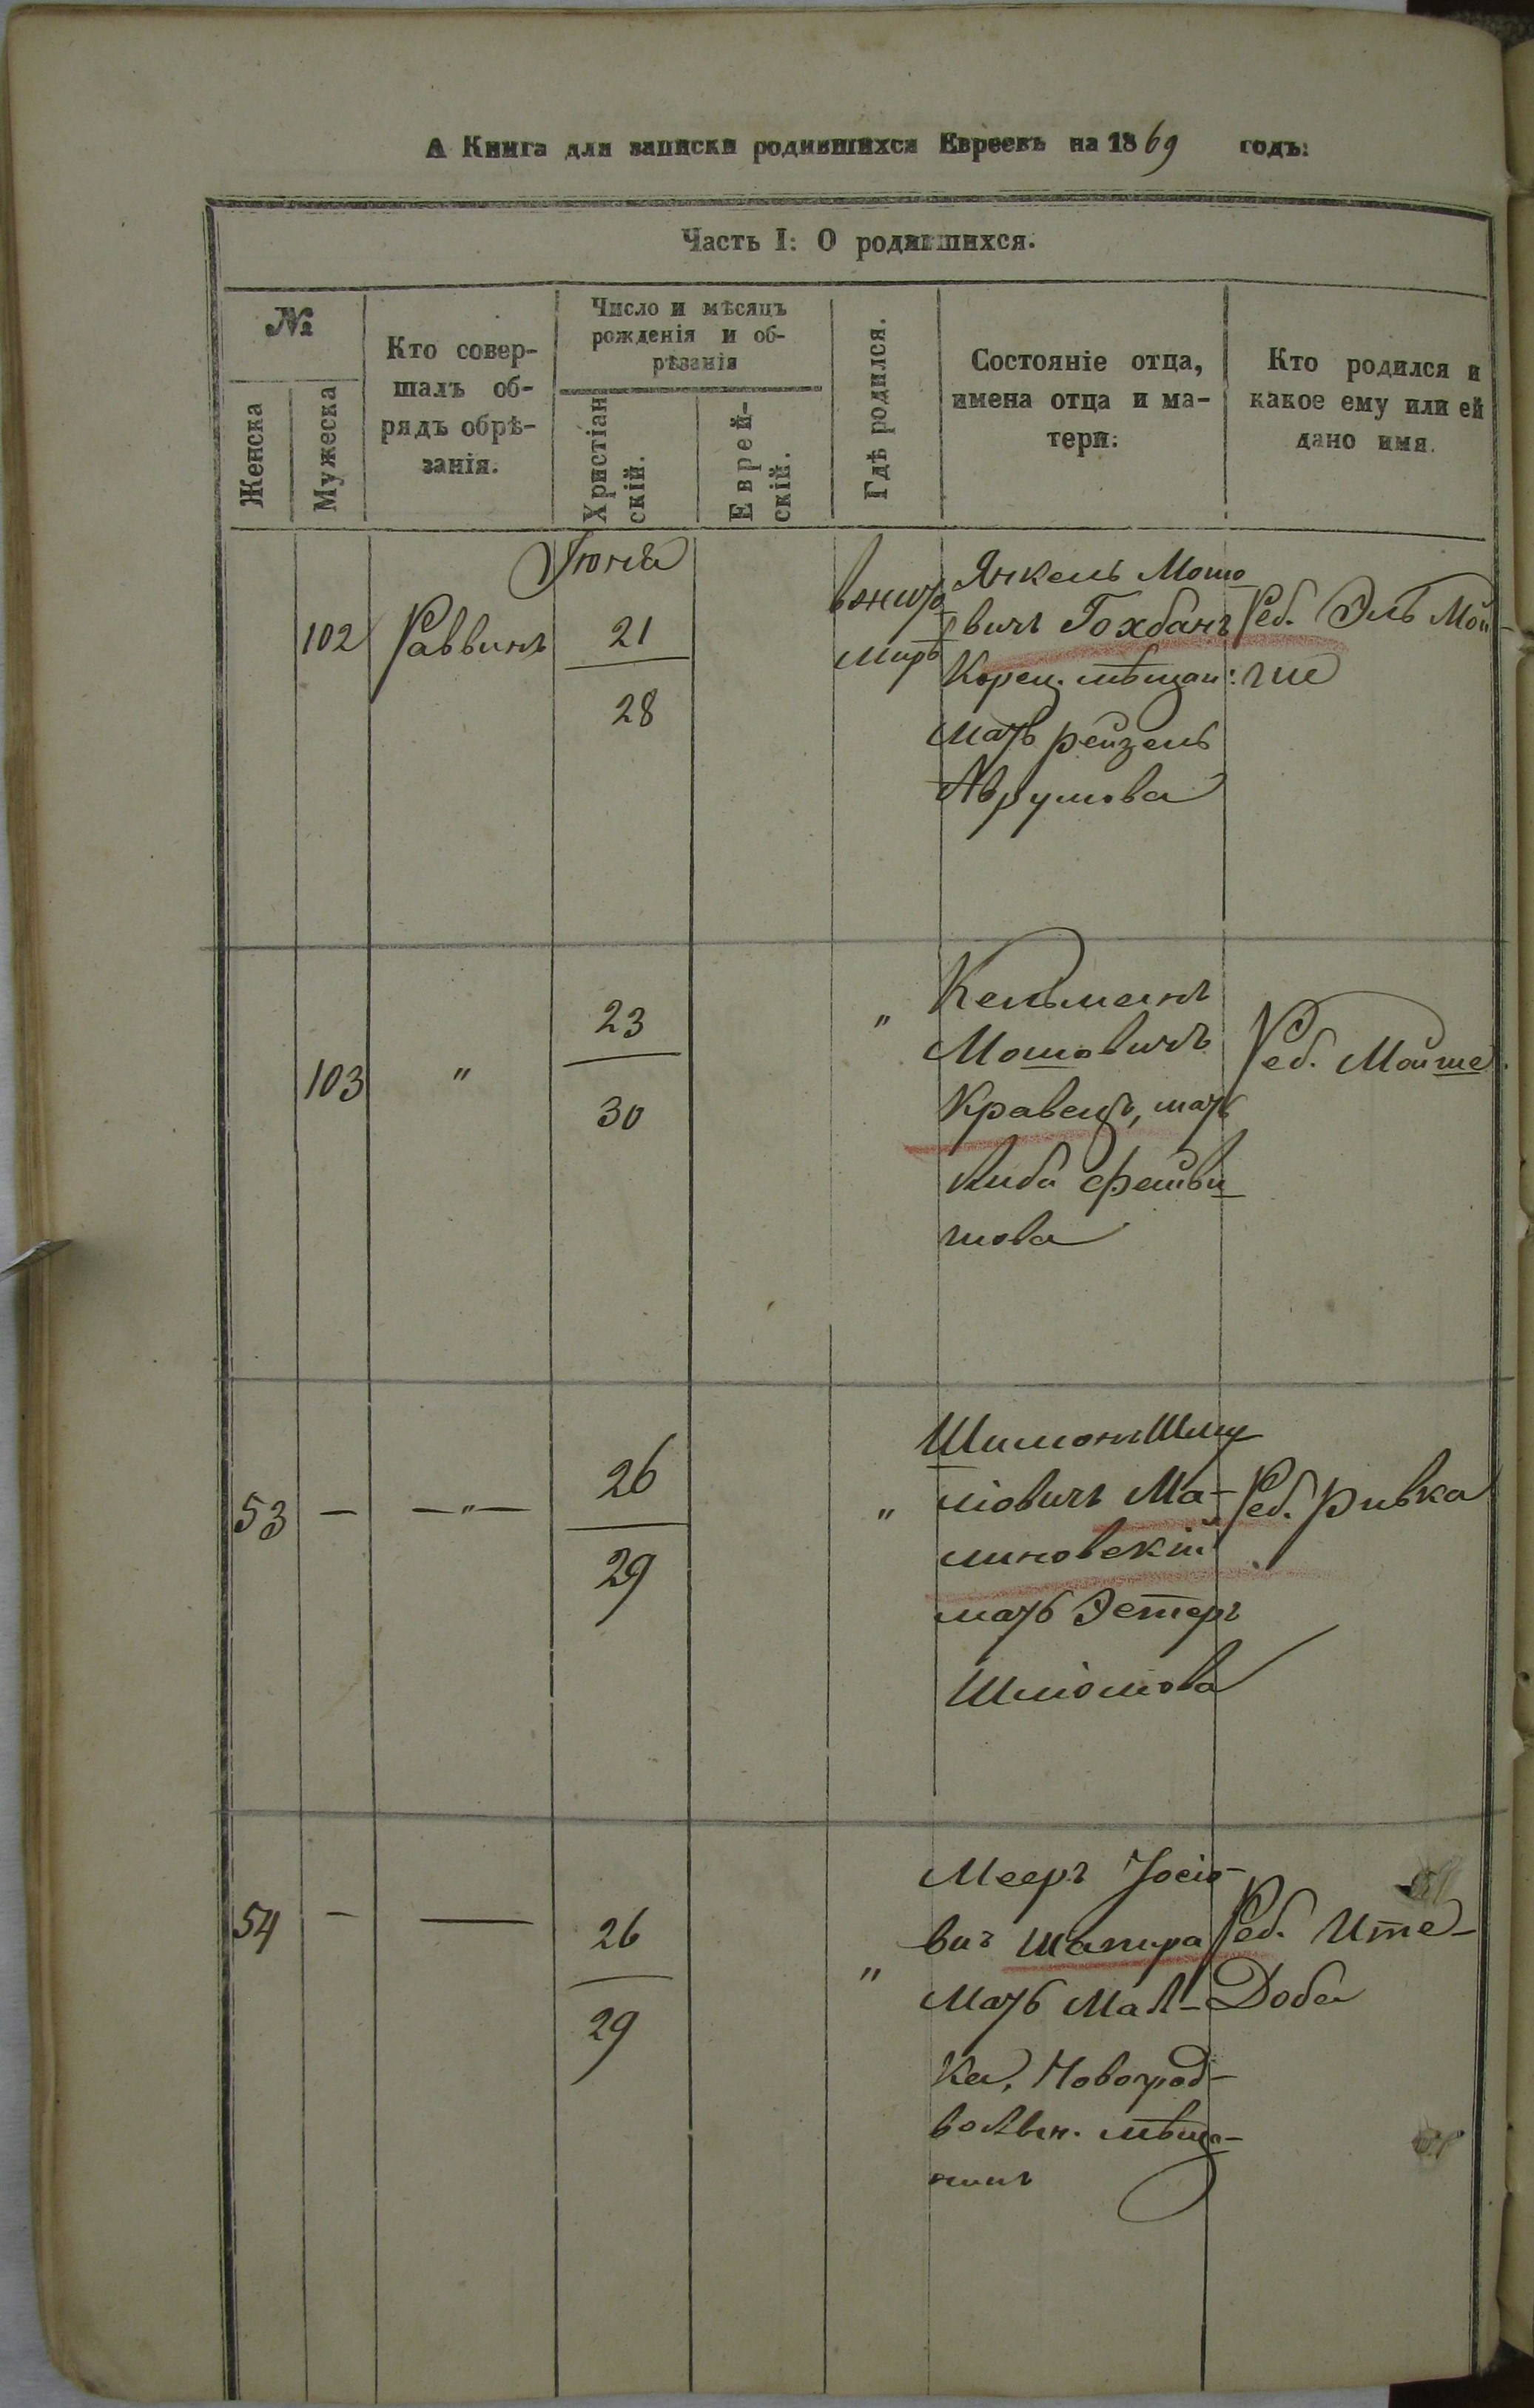 А Книга для записки родившихся Евреевъ на 1869 годъ:
Часть I: О родившихся.
№
Женска
Мужеска
Кто совер-
шалъ об-
рядъ обрѣ-
занія.
Число и мѣсяцъ
рожденія и об-
рѣзанія
Христіан
скій.
Еврей-
скій.
Гдѣ родился.
Состояніе отца,
имена отца и ма-
тери.
Кто родился и
какое ему или ей
дано имя.
Іюня
102
Раввинъ
21
28
миръ
Янкель Мошо
вичъ Гохбанъ
Корец. мѣщан:
мать рейзель
Аврумова
Реб. Эль Мой-
ше
103
"
23
30
"
Кельманъ
Мошовичъ
Кравецъ, мать
Либа Фейви
шова
Реб. Мойше.
53
—
—"—
26
29
"
Шимонъ Шму
ліовичъ Ма-
линовскій
мать Эстеръ
Шліомова
Реб. Ривка
54
—
—
26
29
"
Мееръ Іосіо-
вичъ Шапира
мать Мал-
ка, Новоград-
волын. мѣща-
нинъ
Реб. Ите-
Доба